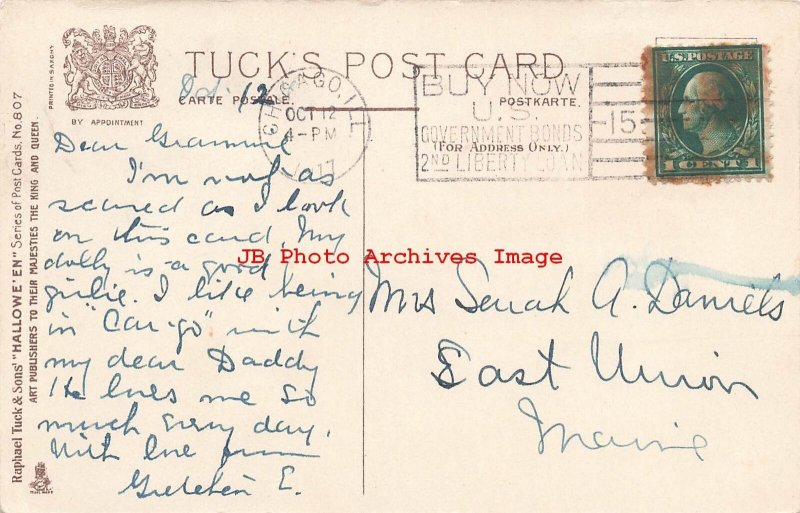 TUCK'S POST CARD
CARTE POSTALE.
POSTKARTE.
(FOR ADDRESS ONLY.)
BY APPOINTMENT
PRINTED IN SAXONY
Raphael Tuck & Sons' "HALLOWE'EN" Series of Post Cards. No. 807
ART PUBLISHERS TO THEIR MAJESTIES THE KING AND QUEEN.
CHICAGO, ILL
OCT 12
4-PM
BUY NOW
U.S.
GOVERNMENT BONDS
2ND LIBERTY LOAN
15
U.S. POSTAGE
1 CENT 1
Oct. 12
Dear Grammie
I'm not as
scared as I look
on this card. My
dolly is a good
girlie. I like being
in "Car-go" with
my dear Daddy
He loves me so
much every day.
With love from
Gretchen E.
Mrs Senah A. Daniels
East Union
Maine
JB Photo Archives Image